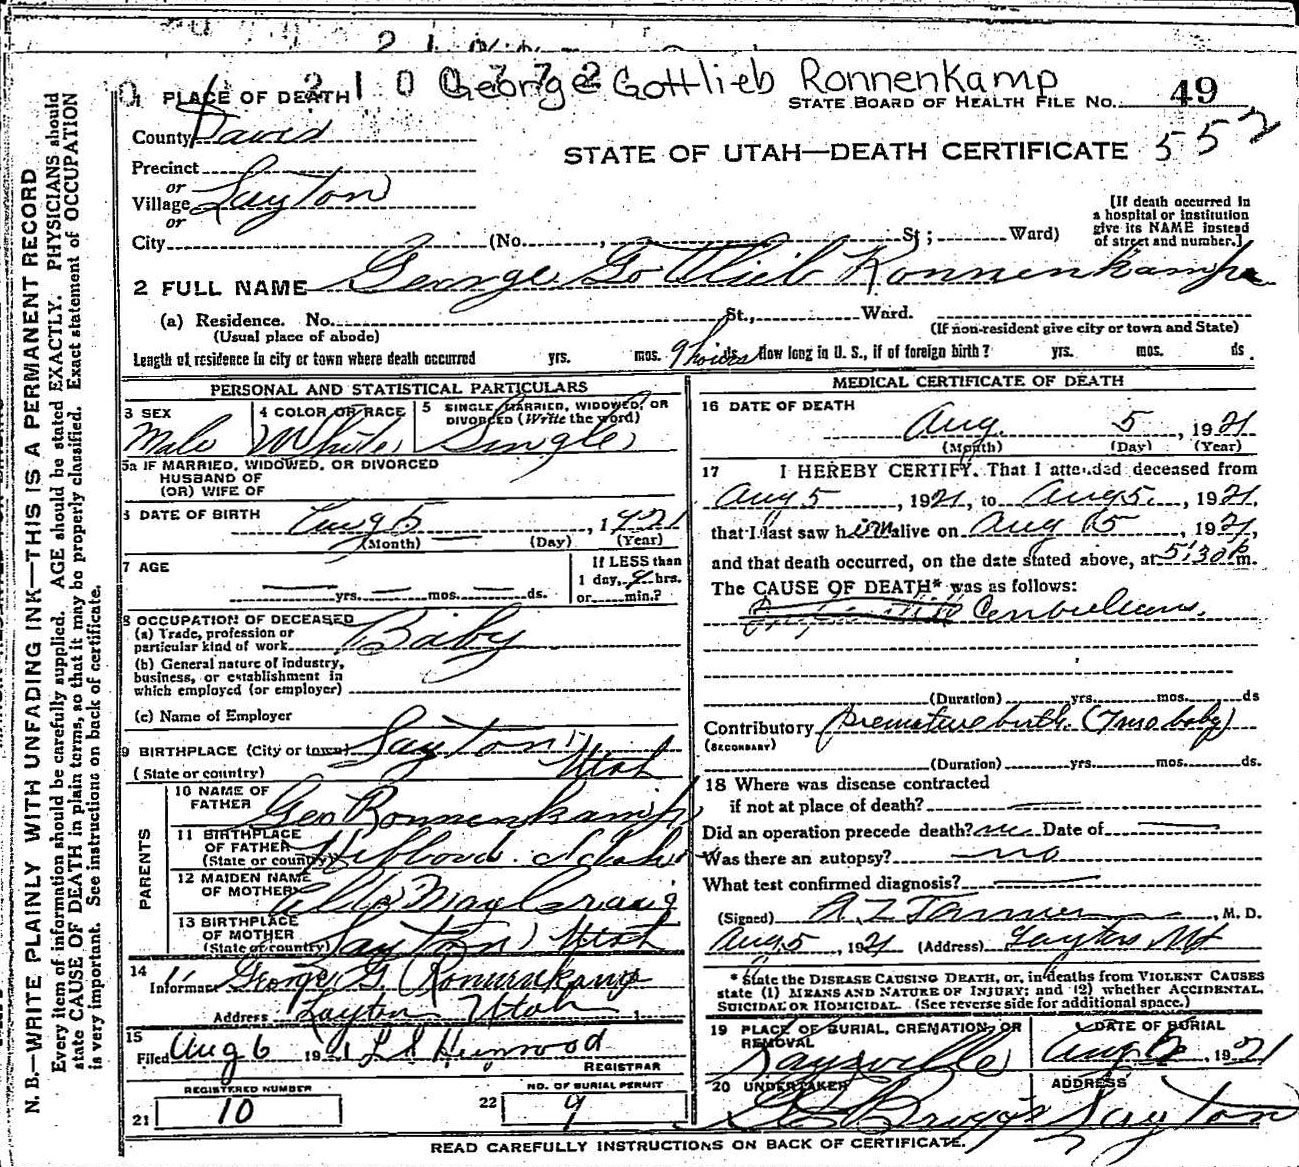 2 1
0 210 0772 George Gottlieb Ronnenkamp
1 PLACE OF DEATH
STATE BOARD OF HEALTH FILE NO. 49
County Davis
STATE OF UTAH—DEATH CERTIFICATE 552
Precinct
or
Village Layton
or
City (No. , St; Ward)
[If death occurred in
a hospital or institution
give its NAME instead
of street and number.]
2 FULL NAME George Gottlieb Ronnenkamp
(a) Residence. No. St., Ward.
(Usual place of abode) (If non-resident give city or town and State)
Length of residence in city or town where death occurred yrs. mos. 9 hours ds. How long in U. S., if of foreign birth? yrs. mos. ds.
PERSONAL AND STATISTICAL PARTICULARS
3 SEX Male
4 COLOR OR RACE White
5 SINGLE, MARRIED, WIDOWED, OR
DIVORCED (Write the word) Single
5a IF MARRIED, WIDOWED, OR DIVORCED
HUSBAND OF
(OR) WIFE OF
6 DATE OF BIRTH Aug 5, 1921
(Month) (Day) (Year)
7 AGE
yrs. mos. ds.
If LESS than
1 day, 9 hrs.
or min.?
8 OCCUPATION OF DECEASED
(a) Trade, profession or
particular kind of work Baby
(b) General nature of industry,
business, or establishment in
which employed (or employer)
(c) Name of Employer
9 BIRTHPLACE (City or town) Layton
(State or country) Utah
PARENTS
10 NAME OF
FATHER Geo Ronnenkamp
11 BIRTHPLACE
OF FATHER
(State or country)
12 MAIDEN NAME
OF MOTHER
13 BIRTHPLACE
OF MOTHER
(State or country) Layton Utah
14
Informant George G. Ronnenkamp
Address Layton Utah
15
Filed Aug 6 1921
REGISTRAR
REGISTERED NUMBER
21 10
NO. OF BURIAL PERMIT
22 9
MEDICAL CERTIFICATE OF DEATH
16 DATE OF DEATH
Aug. 5, 1921
(Month) (Day) (Year)
17 I HEREBY CERTIFY, That I attended deceased from
Aug 5, 1921, to Aug 5, 1921,
that I last saw him alive on Aug 5, 1921,
and that death occurred, on the date stated above, at 5:30 P m.
The CAUSE OF DEATH* was as follows:
(Duration) yrs. mos. ds
Contributory premature birth. (7 mo baby)
(SECONDARY)
(Duration) yrs. mos. ds.
18 Where was disease contracted
if not at place of death?
Did an operation precede death? no Date of
Was there an autopsy? no
What test confirmed diagnosis?
(Signed) A. Z. Tanner, M. D.
Aug 5, 1921 (Address) Layton Ut
* State the DISEASE CAUSING DEATH, or, in deaths from VIOLENT CAUSES
state (1) MEANS AND NATURE OF INJURY; and (2) whether ACCIDENTAL,
SUICIDAL OR HOMICIDAL. (See reverse side for additional space.)
19 PLACE OF BURIAL, CREMATION, OR
REMOVAL Kaysville
DATE OF BURIAL
Aug 1921
20 UNDERTAKER
ADDRESS
Layton
READ CAREFULLY INSTRUCTIONS ON BACK OF CERTIFICATE.
N. B.—WRITE PLAINLY WITH UNFADING INK—THIS IS A PERMANENT RECORD
Every item of information should be carefully supplied. AGE should be stated EXACTLY. PHYSICIANS should
state CAUSE OF DEATH in plain terms, so that it may be properly classified. Exact statement of OCCUPATION
is very important. See instructions on back of certificate.